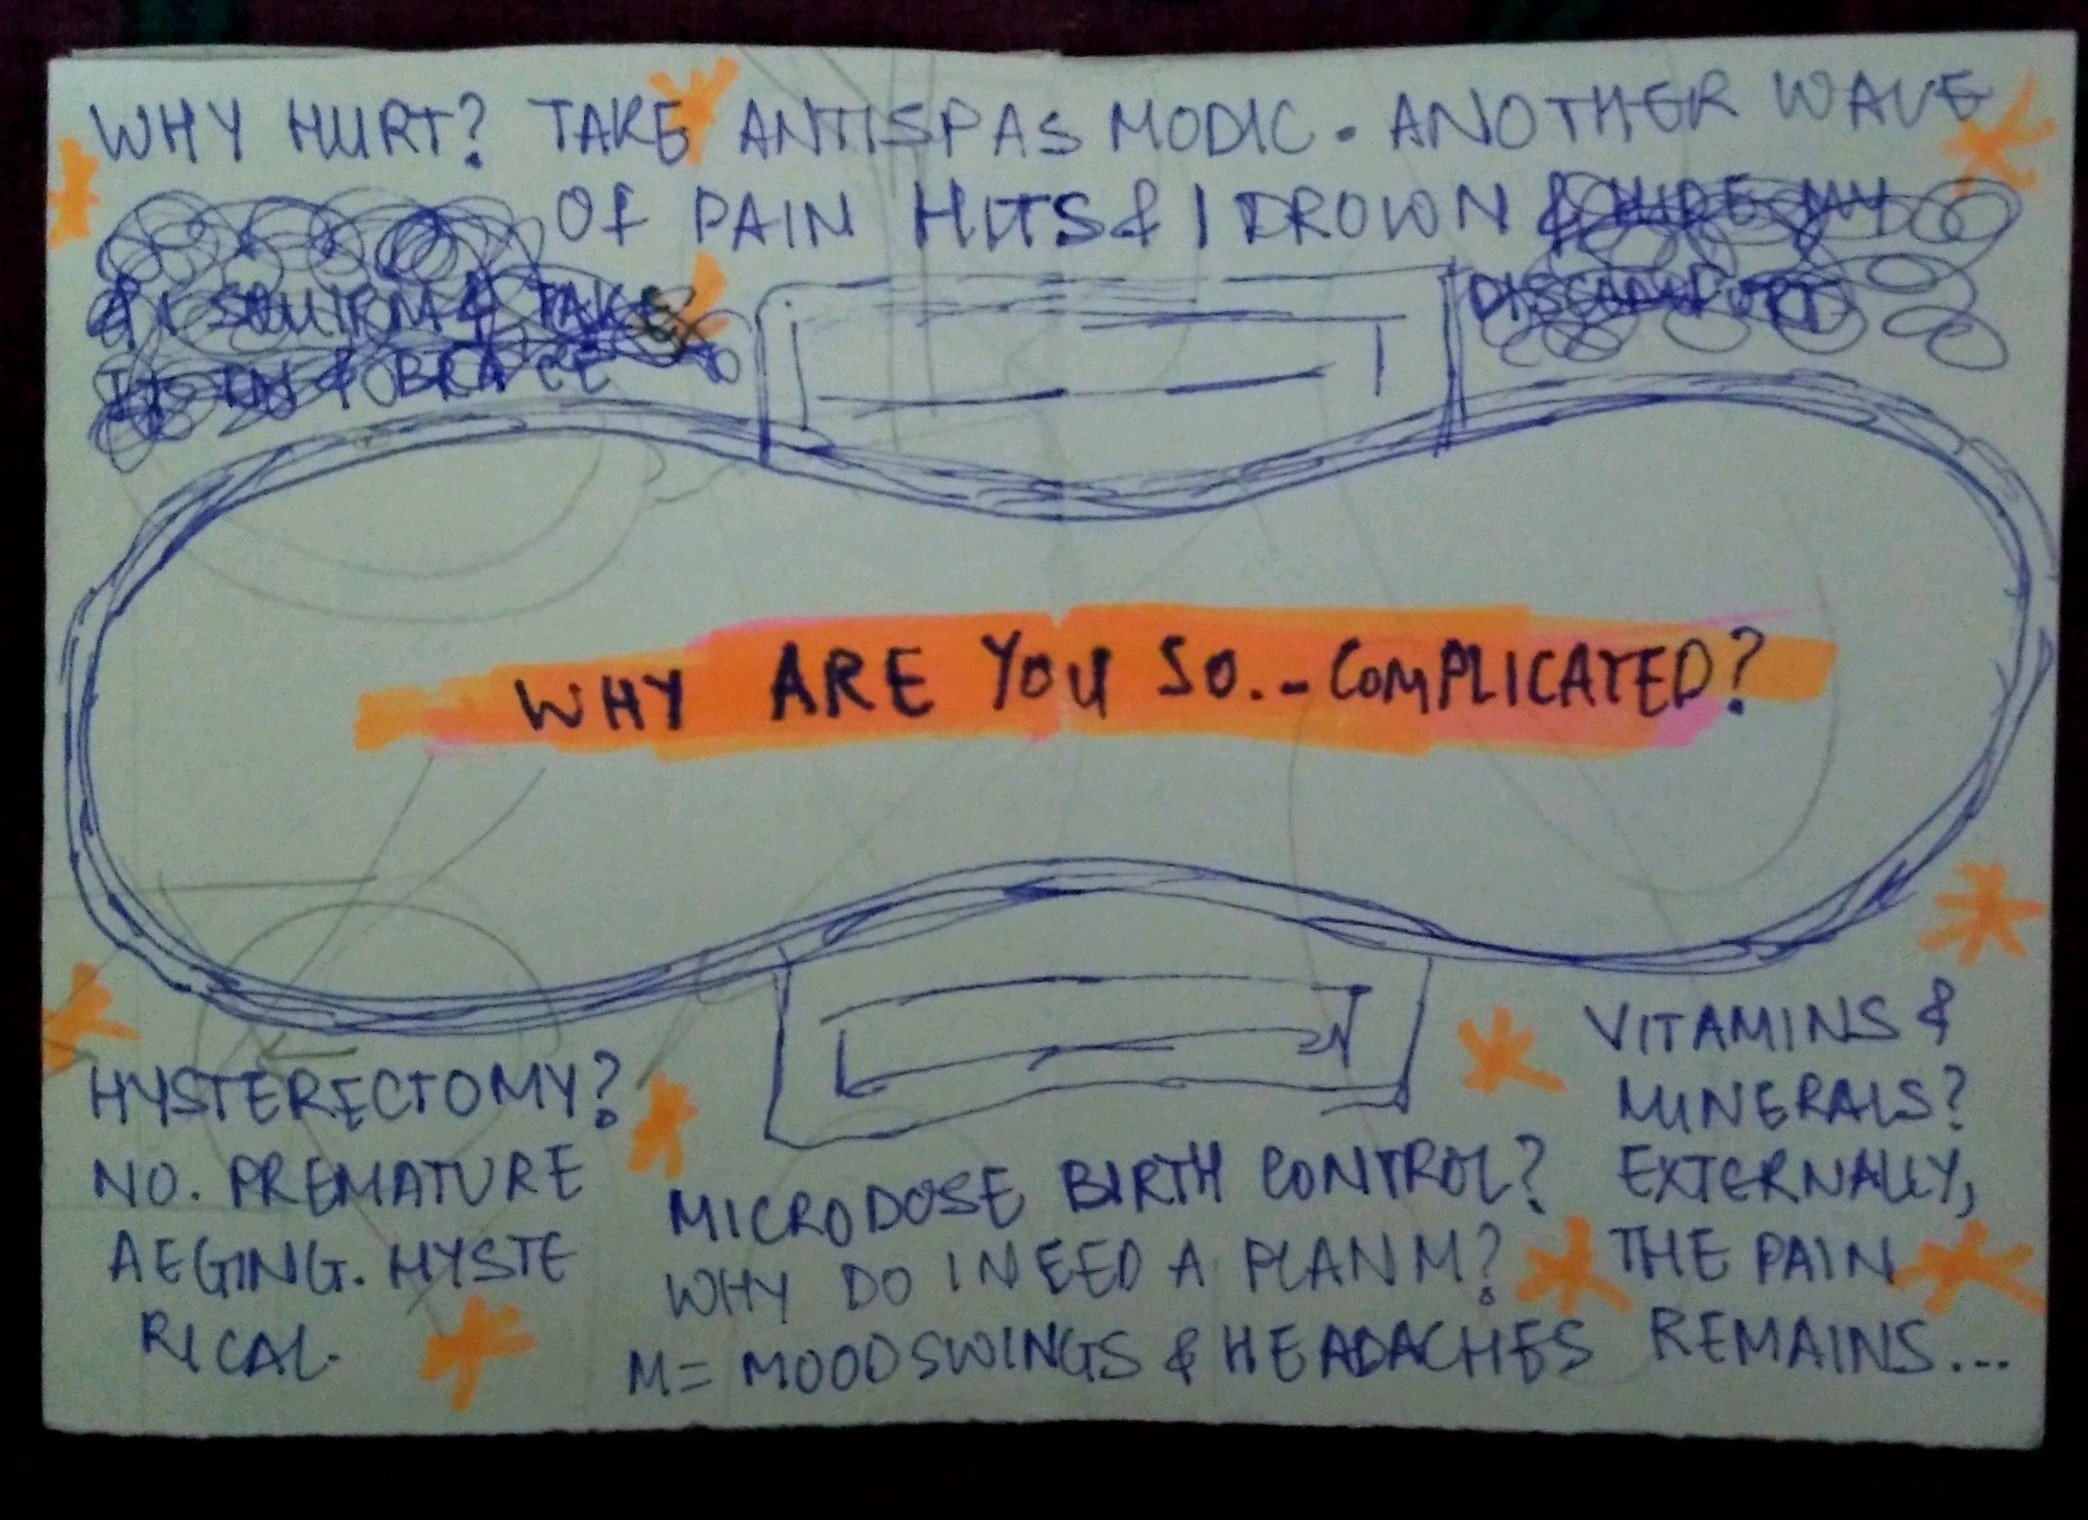 WHY HURT? TAKE ANTISPASMODIC. ANOTHER WAVE
OF PAIN HITS & I DROWN & HIDE MY
DISCOMFORT
& I SQUIRM & TAKE
IT IN & BRACE
WHY ARE YOU SO... COMPLICATED?
HYSTERECTOMY?
NO. PREMATURE
AEGING. HYSTE
RICAL.
MICRODOSE BIRTH CONTROL?
WHY DO I NEED A PLAN M?
M = MOODSWINGS & HEADACHES
VITAMINS &
MINERALS?
EXTERNALLY,
THE PAIN
REMAINS...